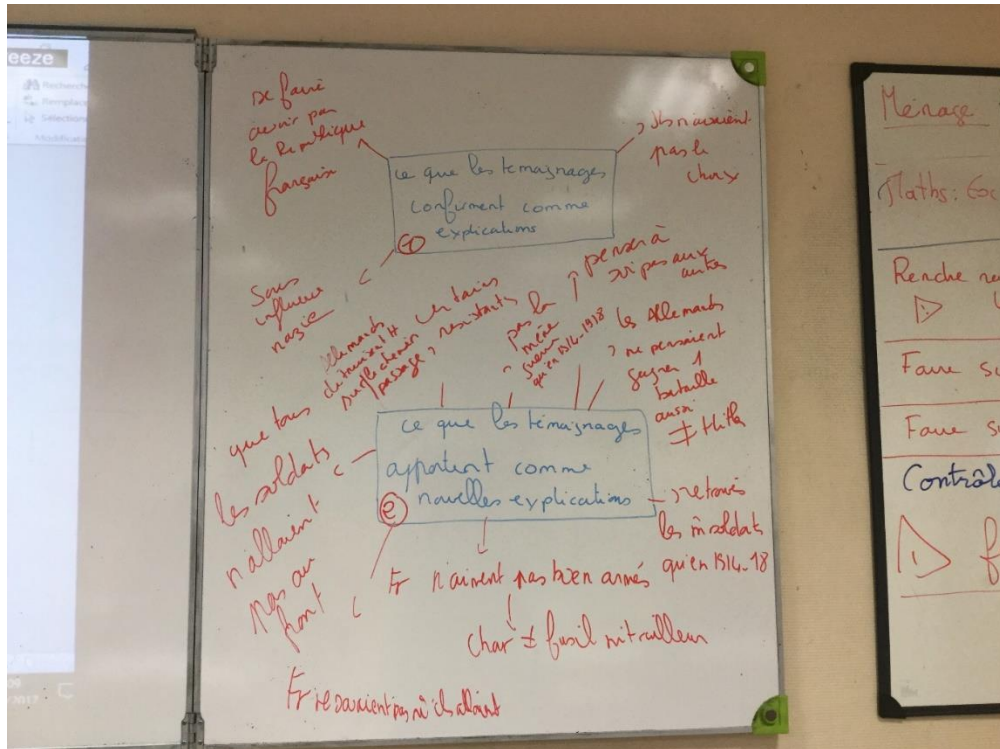 eeze
Recherche
Remplace
Sélection
Modificatio
09
2017
se faire
avoir par
la République
française
ce que les témoignages
confirment comme
explications
1
ils n'avaient
pas le
choix
sous
influence
nazie
Allemands
détruisaient
sur le chemin
passage
certains
résistants
pas la
même
guerre
qu'en 1914-1918
penser à
soi pas aux
autres
les Allemands
ne pensaient
gagner 1
bataille
aussi
≠ Hitler
ce que les témoignages
apportent comme
nouvelles explications
2
que tous
les soldats
n'allaient
pas au
front
retrouvés
les m̂ soldats
qu'en 1914-18
Fr n'aivent pas bien armés
char ≠ fusil mitrailleur
Fr ne savaient pas où ils allaient
Ménage
Maths: Exo
Rendre
Faire
Faire
Contrôle